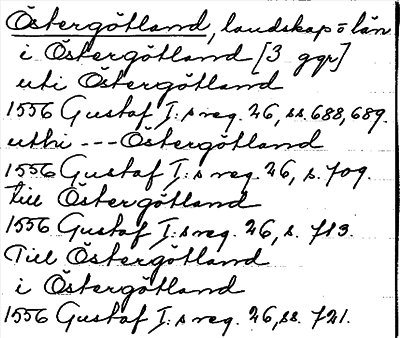 Östergötland, landskap o län
i Östergötland [3 ggr]
uti Östergötland
1556 Gustaf I:s reg. 26, ss. 688, 689.
uthi --- Östergötland
1556 Gustaf I:s reg. 26, s. 709.
till Östergötland
1556 Gustaf I:s reg. 26, s. 713.
Till Östergötland
i Östergötland
1556 Gustaf I:s reg. 26, ss. 721.